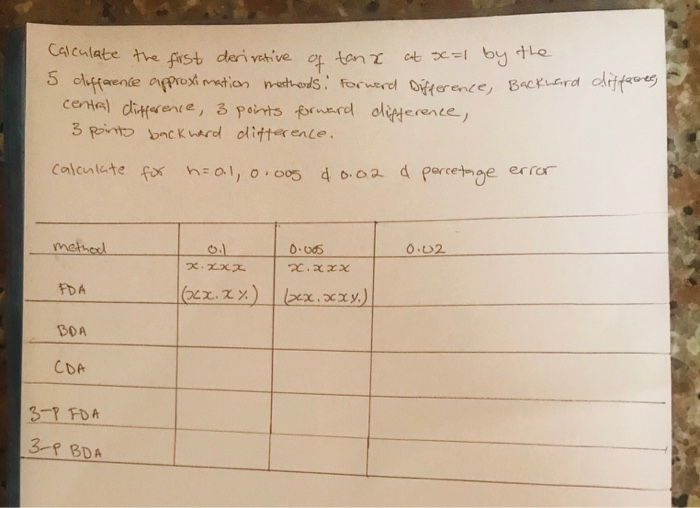 Calculate the first derivative of tan x at x=1 by the
5 difference approximation methods: Forward Difference, Backward difference,
central difference, 3 points forward difference,
3 points backward difference.
Calculate for h=0.1, 0.005 & 0.02 & percetage error
method 0.1 0.005 0.02
x.xxx x.xxx
FDA (xx.x%) (xx.xx%)
BDA
CDA
3-P FDA
3-P BDA